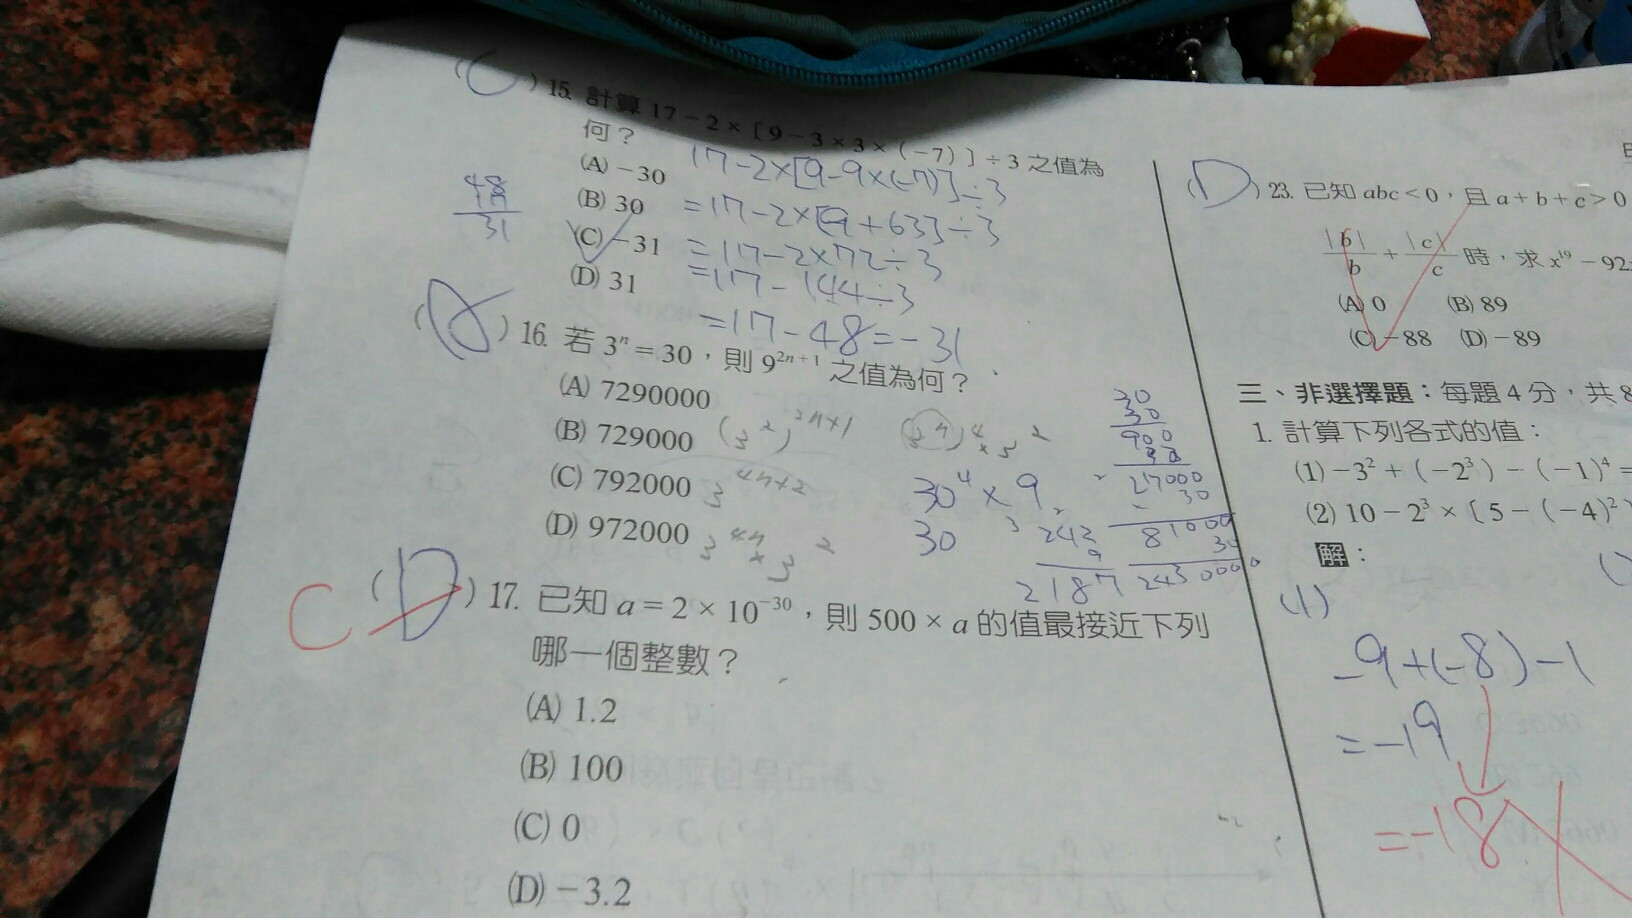 (C) 15. 計算 17－2×〔9－3×3×(－7)〕÷3 之值為
何？
(A) －30
(B) 30
(C) －31
(D) 31
17-2×[9-9×(-7)]÷3
=17-2×[9+63]÷3
=17-2×72÷3
=17-144÷3
=17-48=-31
48
17
31
16. 若 3ⁿ＝30，則 9²ⁿ⁺¹ 之值為何？
(A) 7290000
(B) 729000
(C) 792000
(D) 972000
(3²)²ⁿ⁺¹
3⁴ⁿ⁺²
3⁴ⁿ×3²
(3ⁿ)⁴×3²
30⁴×9
30
30
30
900
27000
30
243
9
2187
2430000
C (D) 17. 已知 a＝2×10⁻³⁰，則 500×a 的值最接近下列
哪一個整數？
(A) 1.2
(B) 100
(C) 0
(D) －3.2
(D) 23. 已知 abc＜0，且 a＋b＋c＞0
|b|/b＋|c|/c 時，求 x¹⁹－92
(A) 0 (B) 89
(C) －88 (D) －89
三、非選擇題：每題 4 分，共 8
1. 計算下列各式的值：
(1) －3²＋(－2³)－(－1)⁴＝
(2) 10－2³×〔5－(－4)²
解：
(1)
-9+(-8)-1
=-19
=-18